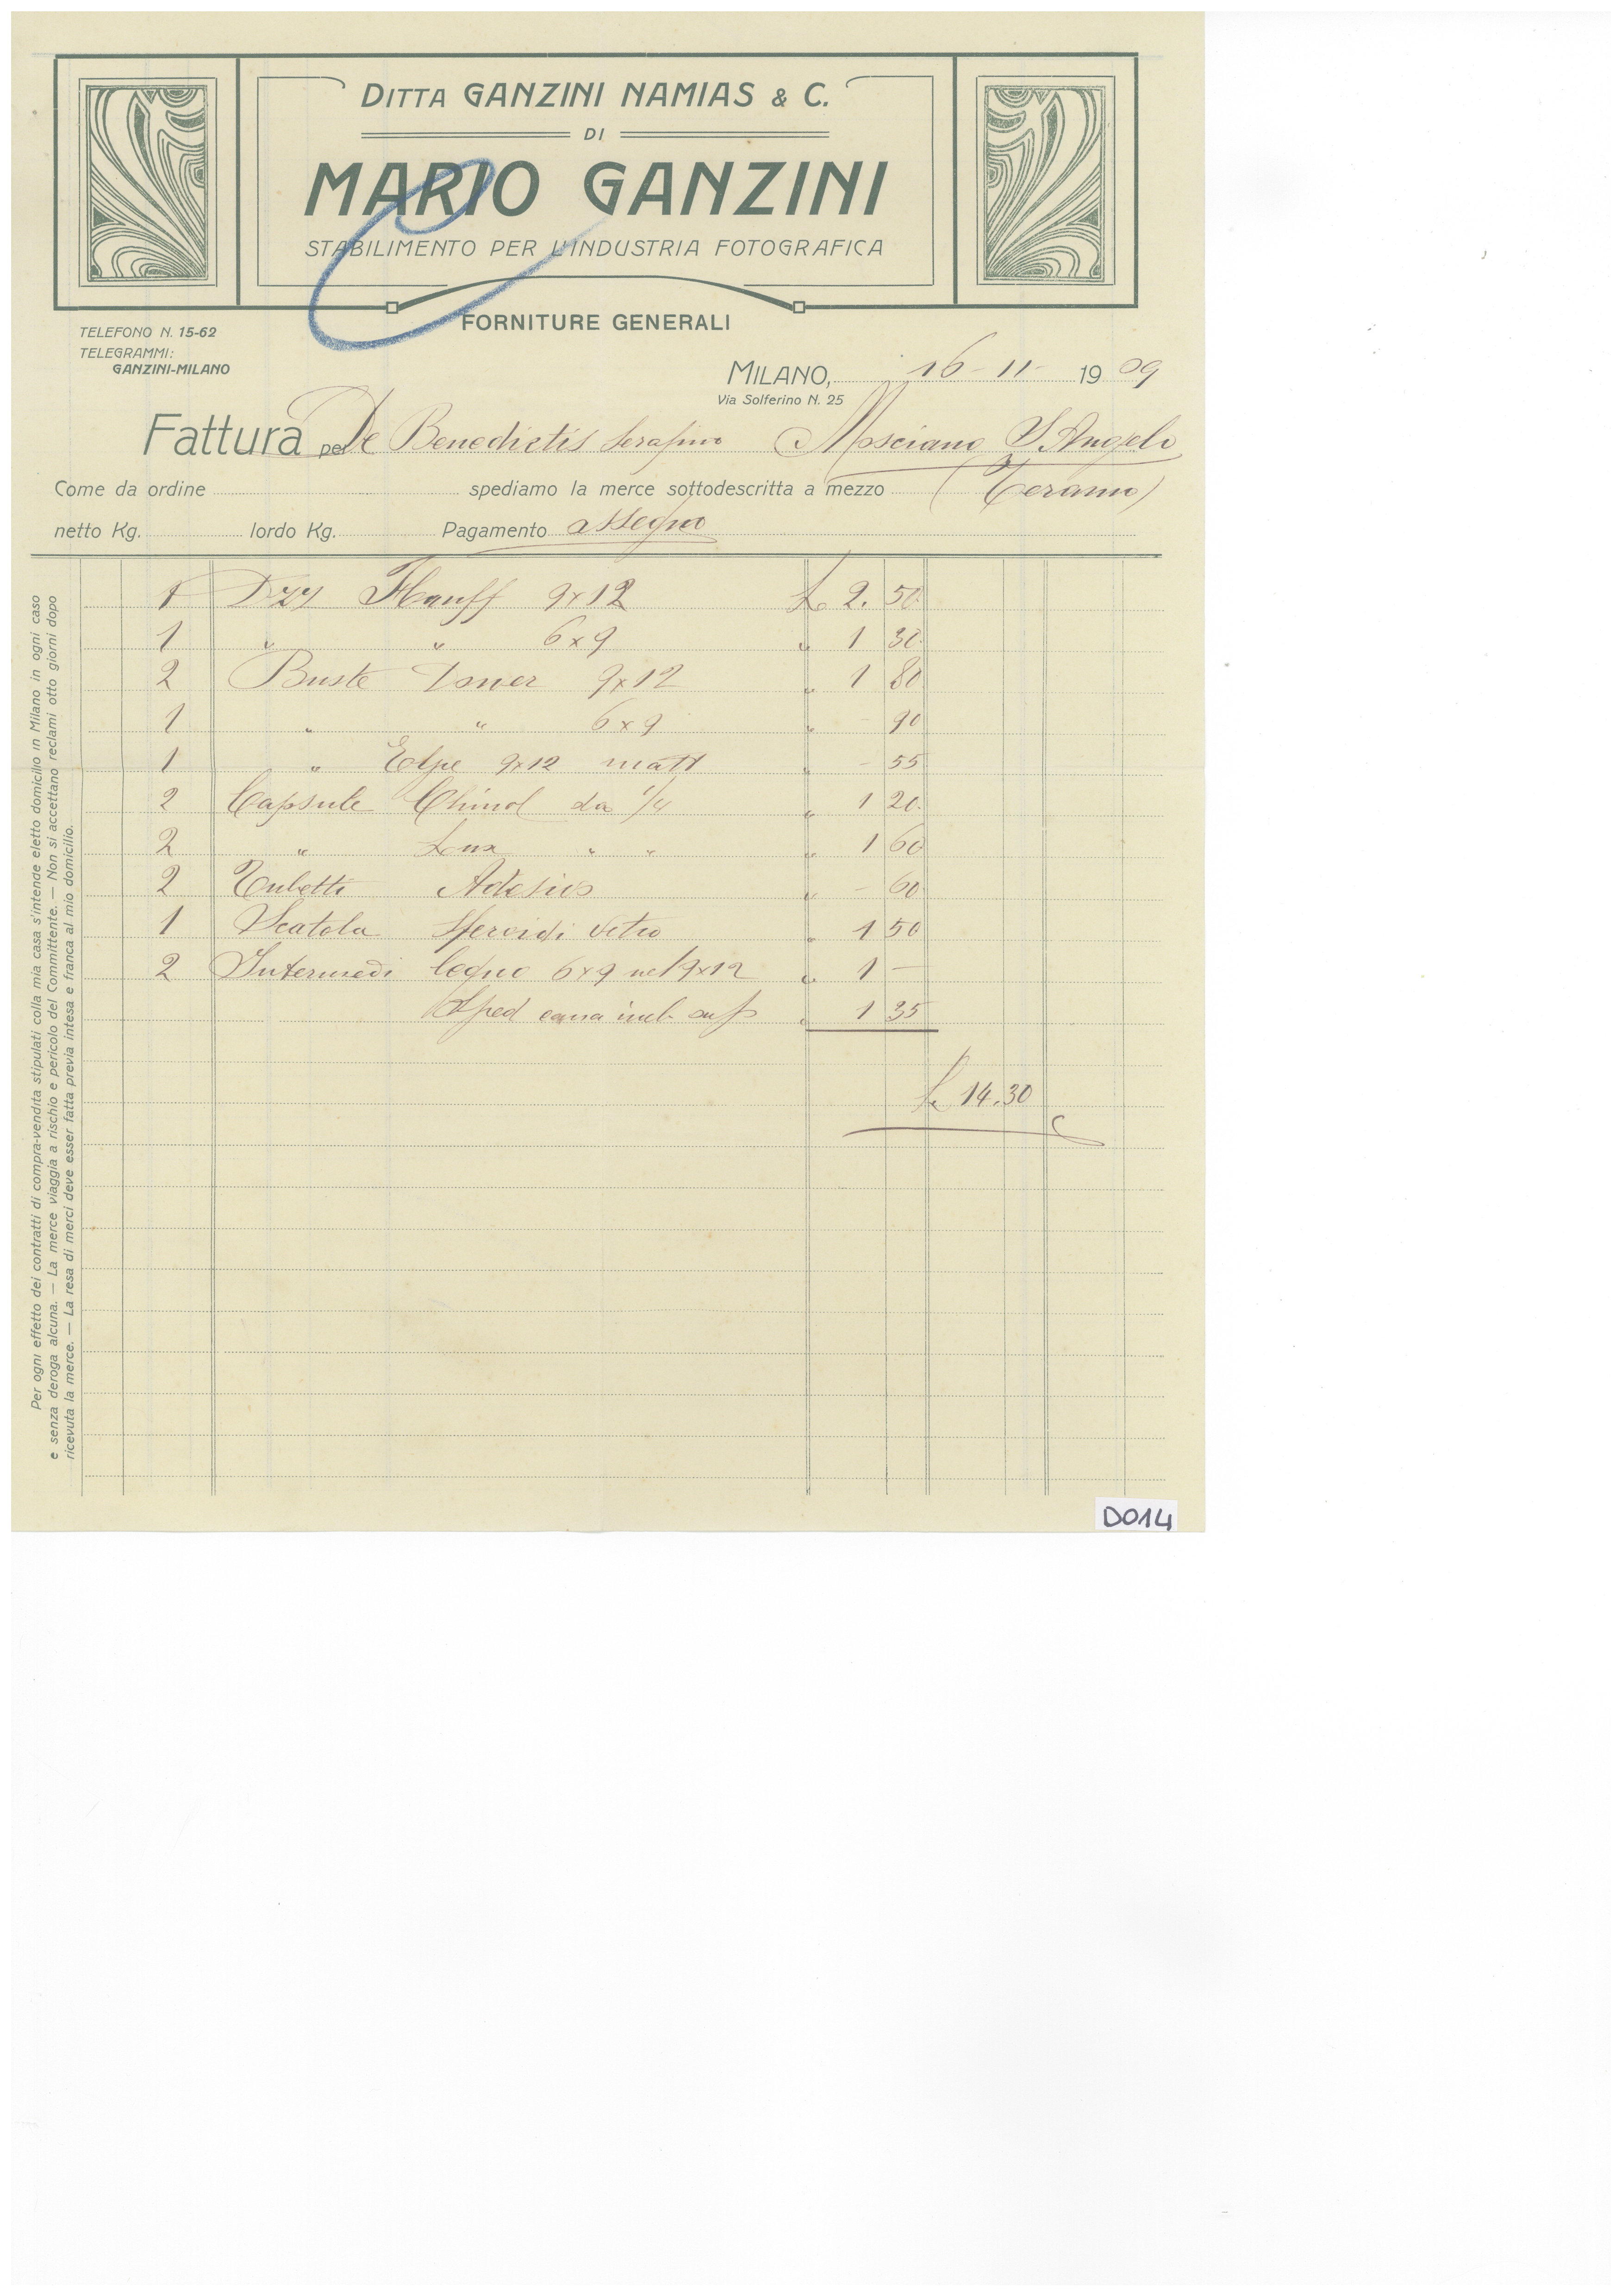 DITTA GANZINI NAMIAS & C.
DI
MARIO GANZINI
STABILIMENTO PER L'INDUSTRIA FOTOGRAFICA
FORNITURE GENERALI
TELEFONO N. 15-62
TELEGRAMMI:
GANZINI-MILANO
MILANO, 16-11- 1909
Via Solferino N. 25
Fattura per De Benedictis Serafino Mosciano S. Angelo
Come da ordine spediamo la merce sottodescritta a mezzo (Teramo)
netto Kg. lordo Kg. Pagamento assegno
1 Dzz Hauff 9x12 L. 2.50
1 " " 6x9 " 1 30
2 Buste 9x12 " 1 80
1 " " 6x9 " - 90
1 " 9x12 matt " - 55
2 Capsule da 1/4 " 1 20
2 " Lux " " " 1 60
2 Tubetti " - 60
1 Scatola sferoidi vetro " 1 50
2 Intermedi legno 6x9 nel 9x12 " 1 -
Sped " 1 35
L. 14.30
Per ogni effetto dei contratti di compra-vendita stipulati colla mia casa s'intende eletto domicilio in Milano in ogni caso
e senza deroga alcuna. — La merce viaggia a rischio e pericolo del Committente. — Non si accettano reclami otto giorni dopo
ricevuta la merce. — La resa di merci deve esser fatta previa intesa e franca al mio domicilio.
D014